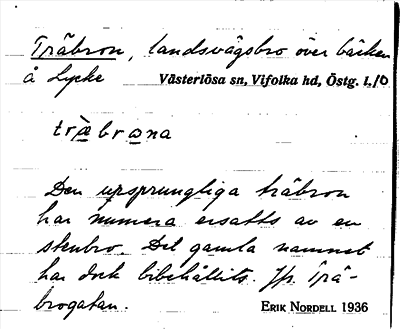 Träbron, landsvägsbro över bäcken
å Lycke Västerlösa sn, Vifolka hd, Östg. l./0
træ̀brơna
Den ursprungliga träbron
har numera ersatts av en
stenbro. Det gamla namnet
har dock bibehållits. Jfr. Trä-
brogatan. ERIK NORDELL 1936